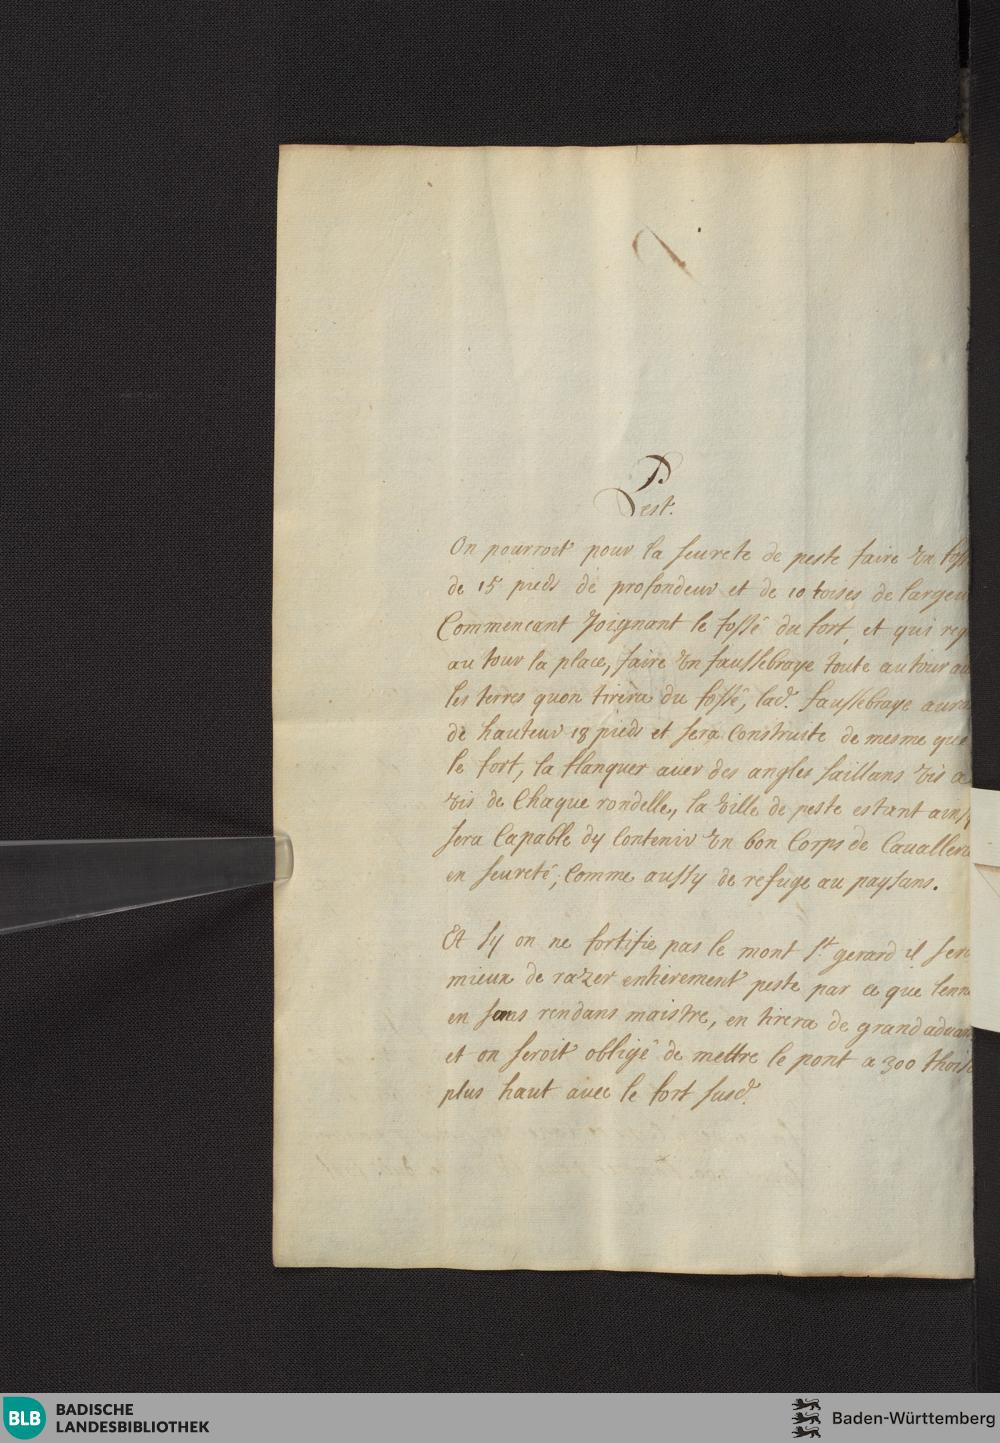 P.
Pest.
On pourroit pour la seureté de peste faire un foss
de 15 pieds de profondeur et de 10 toises de largeu
Commencant Joignant le fossé du fort, et qui reg
au tour la place, faire un faussebraye toute au tour a
les terres quon tirera du fossé, lad. faussebraye aura
de hauteur 18 pieds et sera construite de mesme que
le fort, la flanquer avec des angles saillans vis a
vis de Chaque rondelle, la ville de peste estant ainsy
sera Capable dy Contenir un bon Corps de Cavallerie
en seureté, Comme aussy de refuge au paysans.
Et sy on ne fortifie pas le mont st. gerard il sera
mieux de razer entierement peste par ce que lenne
en sans rendans maistre, en tirera de grand advan
et on seroit obligé de mettre le pont a 300 thoise
plus haut avec le fort susd.
BLB BADISCHE
LANDESBIBLIOTHEK
Baden-Württemberg